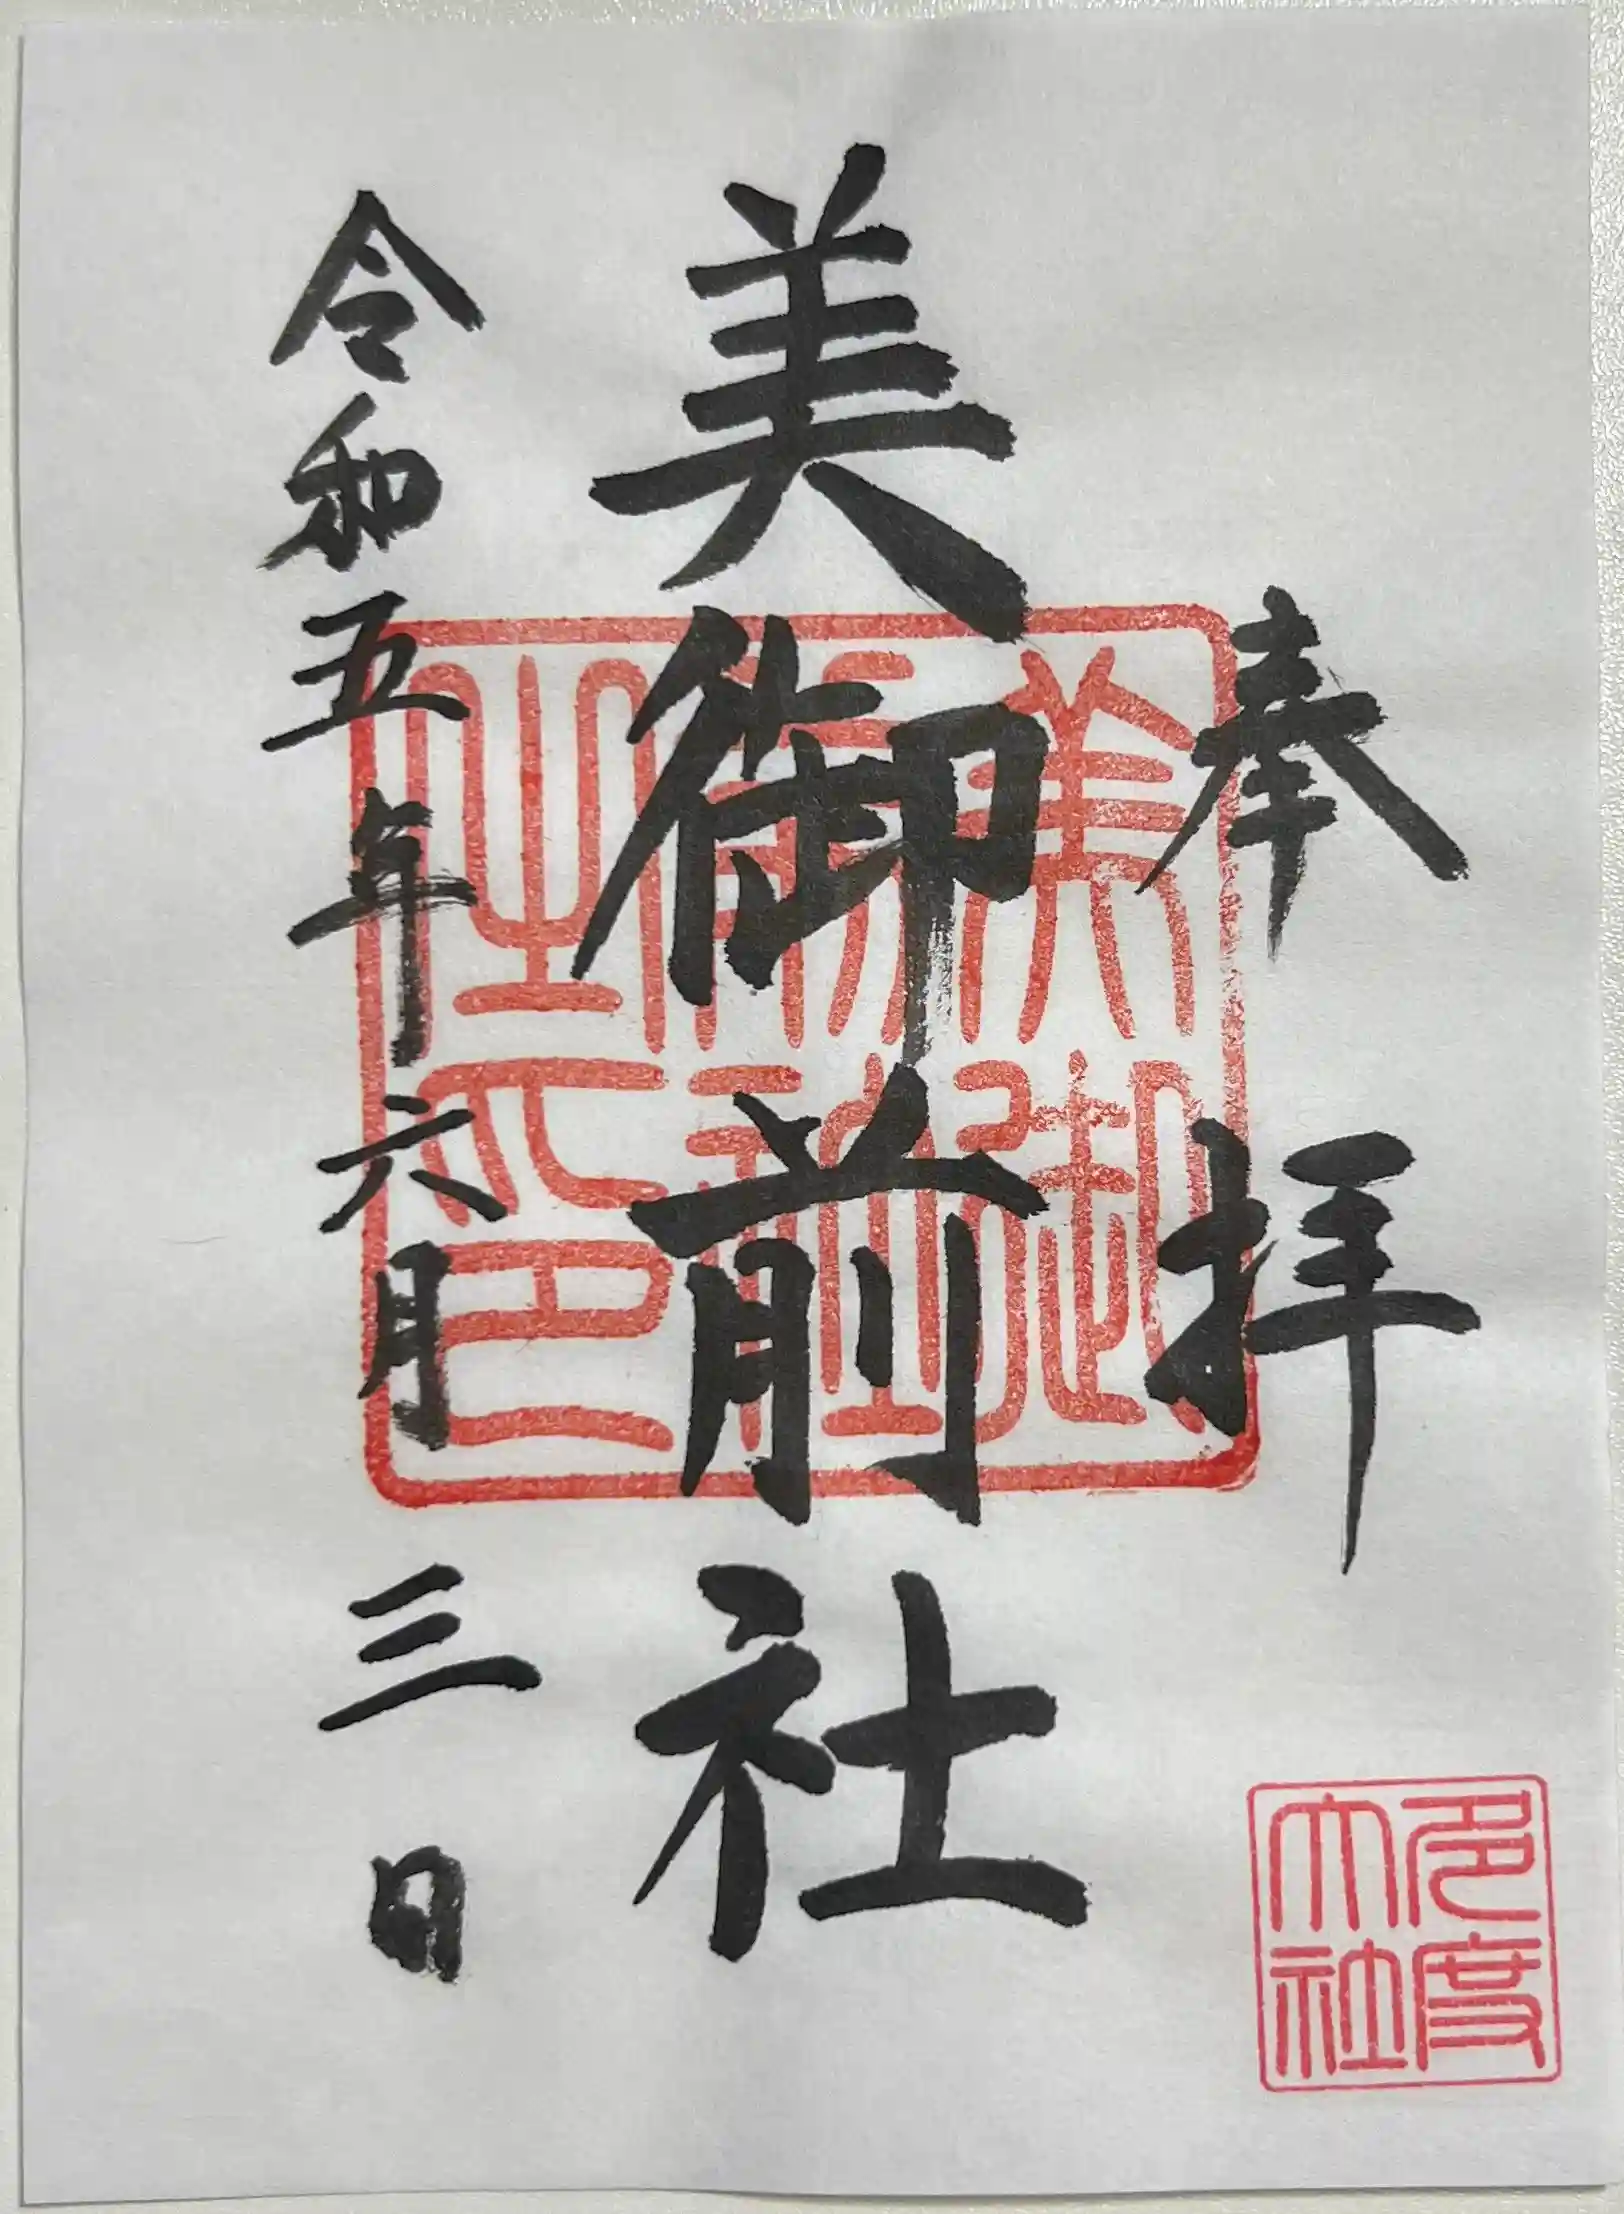 奉拝
美御前社
美御前社之印
令和五年六月三日
多度大社